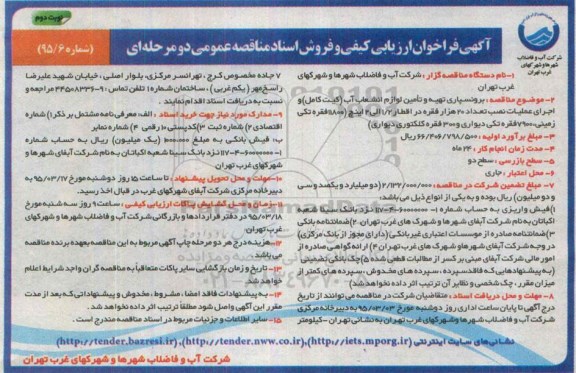 نوبت دوم
آگهی فراخوان ارزیابی کیفی و فروش اسناد مناقصه عمومی دو مرحله ای
(شماره ۹۵/۶)
شرکت آب و فاضلاب
شهرها و شهرکهای
غرب تهران
۱-نام دستگاه مناقصه گزار : شرکت آب و فاضلاب شهرها و شهرکهای
غرب تهران
۲- موضوع مناقصه : برونسپاری تهیه و تأمین لوازم انشعاب آب (کیت کامل) و
اجرای عملیات نصب تعداد ۲۰ هزار فقره در اقطار
زمینی ۷۹۰۰ فقره تکی دیواری و ۳۰۰ فقره کلکتوری دیواری)
۳- مبلغ برآورد اولیه : ۶۶/۴۰۶/۷۹۸/۵۰۰ ریال
۴- مدت زمان انجام کار : ۲۴ ماه
۵- سطح بازرسی : سطح دو
۶- محل اعتبار : جاری
۷- مبلغ تضمین شرکت در مناقصه : ۲/۱۳۲/۰۰۰/۰۰۰ (دو میلیارد و یکصد و سی
و دو میلیون) ریال بوده و به یکی از انواع ذیل می باشد:
۱)فیش واریزی به حساب شماره نزد بانک سینا شعبه
اکباتان به نام شرکت آبفای شهرها و شهرک های غرب تهران ۲)ضمانتنامه بانکی
۳)ضمانتنامه صادره از موسسات اعتباری غیربانکی (دارای مجوز از بانک مرکزی)
در وجه شرکت آبفای شهرها و شهرک های غرب تهران ۴) ارائه گواهی صادره از
امور مالی شرکت آبفای مبنی بر کسر از مطالبات قطعی شده ۵)چک بانکی تضمینی
(به پیشنهادهایی که فاقد سپرده ، سپرده های مخدوش ، سپرده های کمتر از
میزان مقرر ، چک شخصی و نظایر آن ترتیب اثر داده نخواهد شد)
۸- مهلت و محل دریافت اسناد : متقاضیان شرکت در مناقصه می توانند از تاریخ
درج آگهی تا پایان ساعت اداری روز دوشنبه مورخ ۹۵/۰۳/۰۳ به دبیرخانه مرکزی
شرکت آب و فاضلاب شهرها و شهرکهای غرب تهران به نشانی تهران - کیلومتر
۷ جاده مخصوص کرج ، تهرانسر مرکزی، بلوار اصلی ، خیابان شهید علیرضا
راسخ مهر (یکم غربی) ، ساختمان شماره ۱ تلفن تماس : ۹-۴۴۵۰۸۳۳۶ مراجعه و
نسبت به دریافت اسناد اقدام نمایند .
۹- مدارک مورد نیاز جهت خرید اسناد : الف: معرفی نامه (مشتمل بر ذکر ۱) شماره
اقتصادی ۲) شماره ثبت ۳)کدپستی ۱۰ رقمی ۴) شماره نمابر
ب: فیش بانکی به مبلغ ۱۰۰۰۰۰۰ (یک میلیون) ریال به حساب شماره
نزد بانک سینا شعبه اکباتان به نام شرکت آبفای شهرها و
شهرکهای غرب تهران
۱۰-مهلت و محل تحویل پیشنهاد : تا ساعت ۱۵ روز دوشنبه مورخ ۹۵/۰۳/۱۷ به
دبیرخانه مرکزی شرکت آبفای شهرکهای غرب در قبال اخذ رسید.
۱۱- زمان و محل گشایش پاکات ارزیابی کیفی : ساعت ۹ روز سه شنبه مورخ
۹۵/۰۳/۱۸ در دفتر قراردادها و بازرگانی شرکت آب و فاضلاب شهرها و شهرکهای
غرب تهران
۱۲- هزینه درج هر دو مرحله چاپ آگهی مربوط به این مناقصه بعهده برنده مناقصه
می باشد.
۱۳- تاریخ و زمان بازگشایی سایر پاکات متعاقباً به مناقصه گران واجد شرایط اعلام
خواهد شد.
۱۴- به پیشنهادات فاقد امضا ، مشروط ، مخدوش و پیشنهاداتی که بعد از مدت
مقرر این آگهی واصل شود مطلقا ترتیب اثر داده نخواهد شد.
۱۵- سایر اطلاعات و جزئیات مربوط در اسناد مناقصه مندرج است .
نشانی های سایت اینترنتی (http://iets.mporg.ir)،(http://tender.nww.co.ir)،(http://tender.bazresi.ir)
شرکت آب و فاضلاب شهرها و شهرکهای غرب تهران